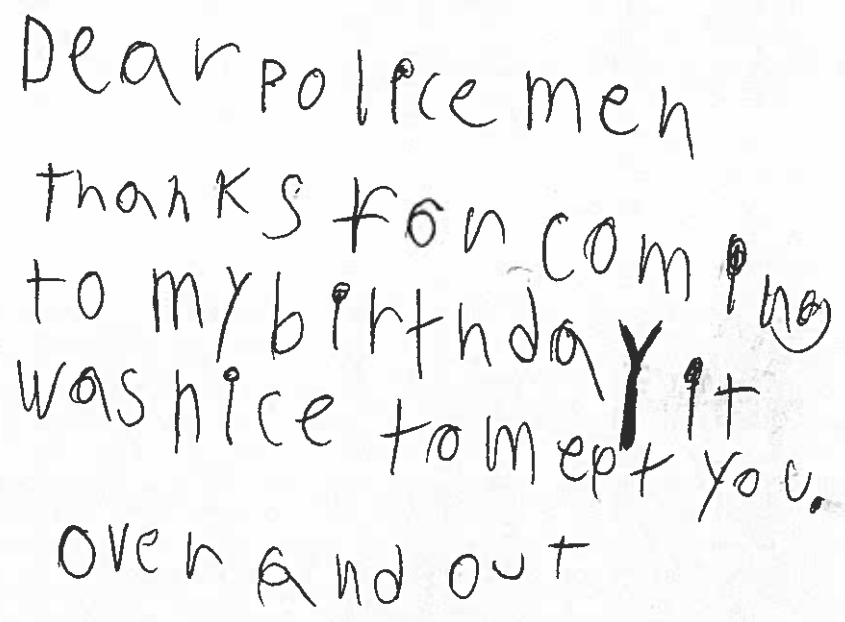 Dear policemen
thanks for coming
to my birthday it
was nice to meet you.
over and out